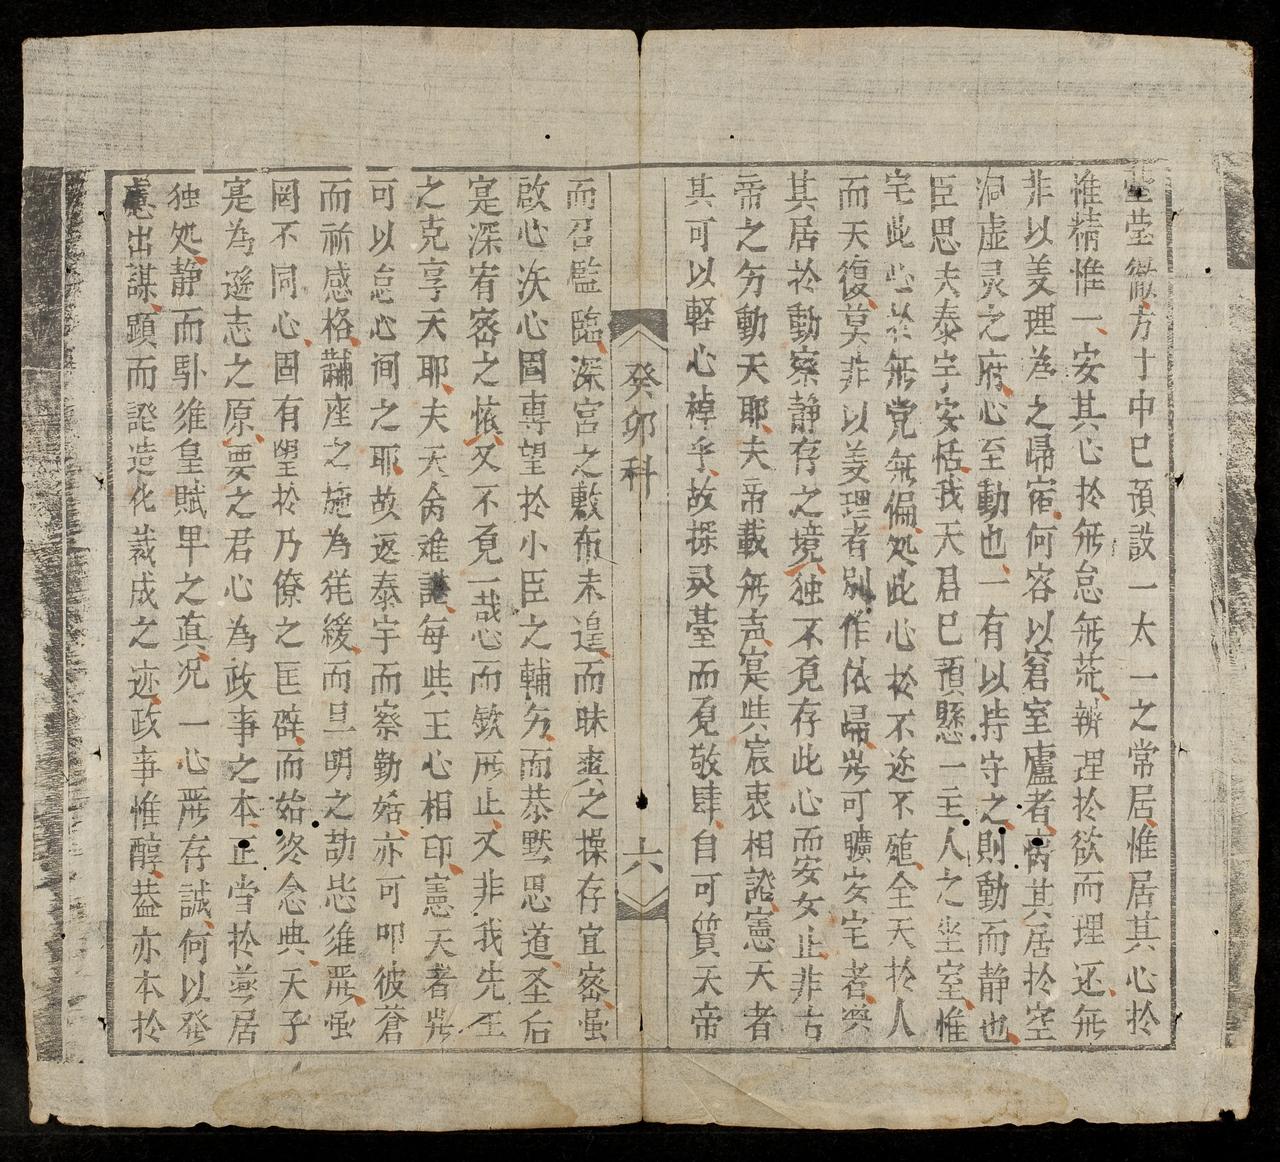 瑩澈方寸中已預設一太一之常居惟居其心於
惟精惟一安其心於無怠無荒辨理於欲而理还無
非以美理為之歸宿何容以窓室廬者病其居於空
洞虚灵之府心至動也一有以持守之則動而静也
臣思夫泰宇安恬我天君已預懸一主人之坐室惟
宅此心於無党無偏処此心於不迩不殖全天於人
而天復莫非以美理者别作依歸兴可曠安宅者奨
其居於動察静存之境独不覓存此心而安女止非古
帝之勿動天耶夫帝載無声寔與宸衷相證憲天者
其可以軽心掉乎故探灵臺而覔敬肆自可質天帝
癸卯科
六
而召監臨深宫之敷布未遑而昧爽之操存宜密虽
啟心沃心固専望於小臣之輔勿而恭黙思道圣后
寔深宥密之懷又不覓一哉心而欽所止又非我先王
之克享天耶夫天命难諶每與王心相印憲天者兴
可以怠心间之耶故返泰宇而察勤怠亦可叩彼蒼
而祈感格黼座之施為徒緩而旦明之劼毖维严虽
罔不同心固有望於乃僚之匡辟而始终念典天子
寔為遜志之原要之君心為政事之本正當於燕居
独処静而卧维皇賦畀之真况一心严存誠何以發
慮出謀顕而證造化裁成之迹政事惟醇葢亦本於